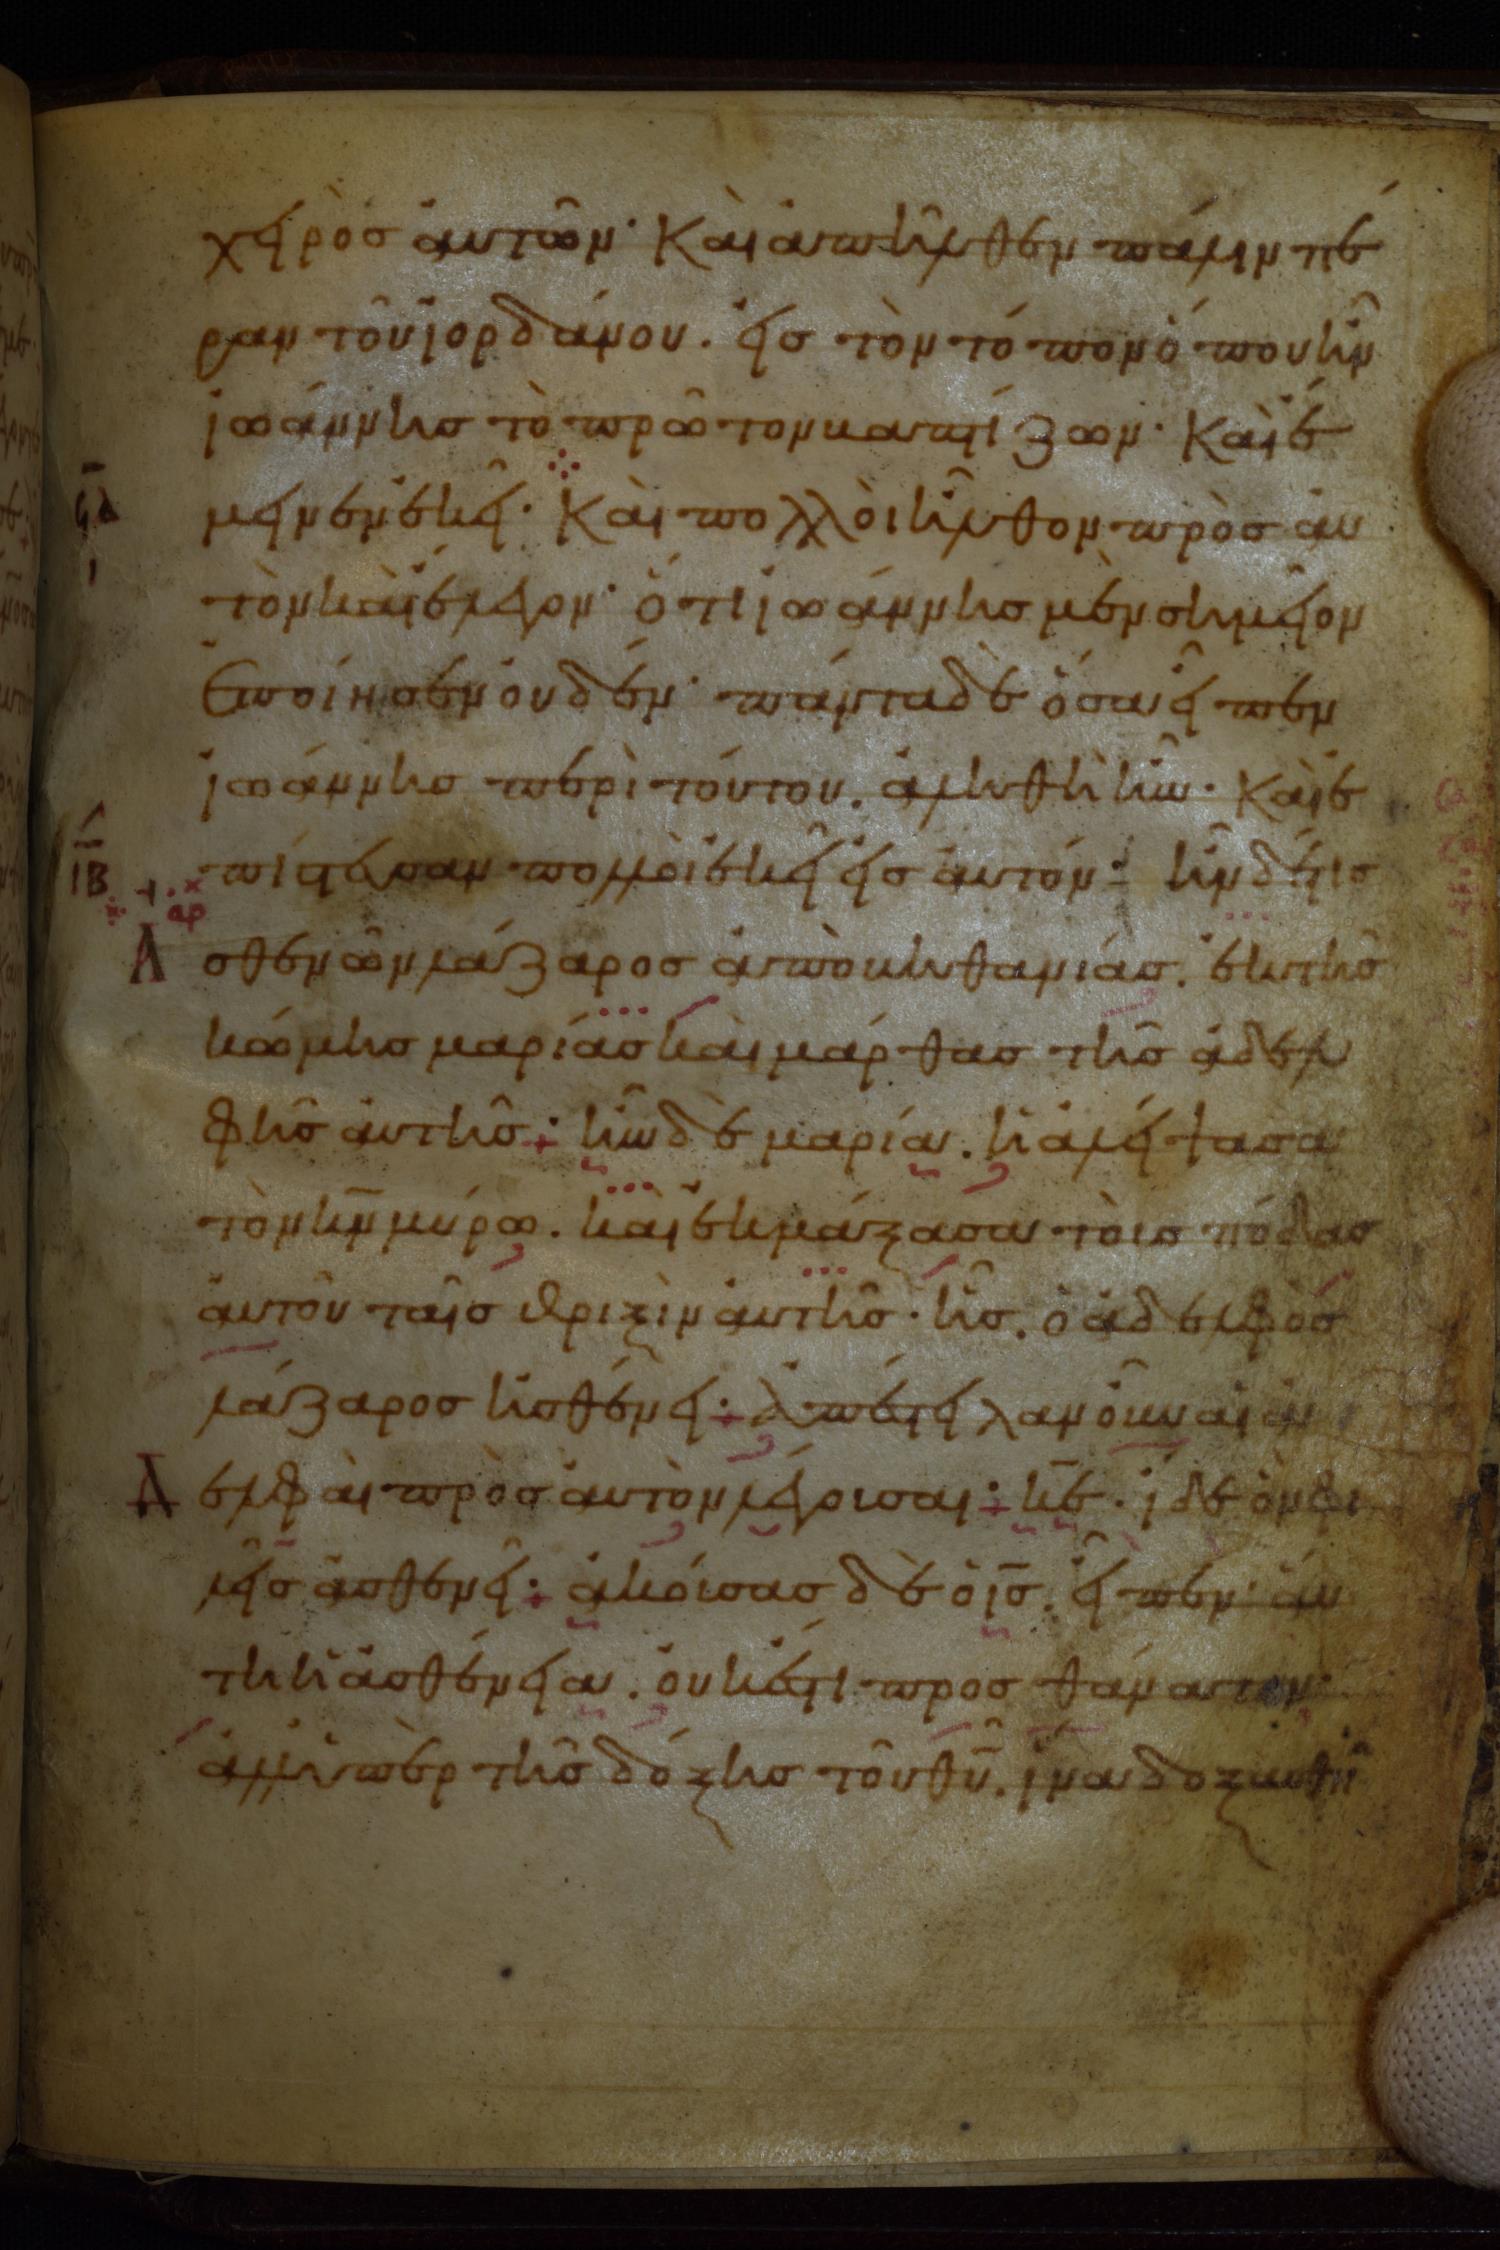 χειρὸσ ἀυτῶν· Καὶ ἀπῆλθεν πάλιν πέ
ραν τοῦ ἰορδάνου. εἰσ τὸν τόπον ὁπου ἦν
ἰωάννησ τὸ πρῶτον βαπτίζων· Καὶ ἔ
μεινεν ἐκεῖ· Καὶ πολλοὶ ἦλθον πρὸσ ἀυ
τὸν καὶ ἔλεγον· ὅτι ἰωάννησ μὲν σημεῖον
Ἐποίησεν ὀυδέν· πάντα δὲ ὅσα εἶπεν
ἰωάννησ περὶ τούτου. ἀληθῆ ἦν· Καὶ ἐ
ΙΒ
πίστευσαν πολλοὶ ἐκεῖ εἰσ ἀυτόν: ἦν δέ τισ
αρ
Ἀσθενῶν λάζαροσ ἀπὸ βηθανιάσ. ἐκ τῆσ
κώμησ μαρίασ καὶ μάρθασ τῆσ ἀδελ
φῆσ ἀυτῆσ: ἦν δὲ μαρία. ἡ ἀλείψασα
τὸν κ̅ν̅ μύρω. καὶ ἐκμάξασα τοὺσ πόδασ
ἀυτοῦ ταῖσ θριξὶν ἀυτῆσ· ἧσ. ὁ ἀδελφὸσ
λάζαροσ ἠσθένει: ἀπέστειλαν οὖν αἱ ἀδ
Δ
ελφαὶ πρὸσ ἀυτὸν λέγουσαι: κ̅ε̅. ἴδε ὃν φι
λεῖσ ἀσθενεῖ: ἀκούσασ δὲ ὁ ι̅σ̅. εἶπεν· ἁυ
τη ἡ ἀσθένεια. ὀυκ ἔστι προσ θάνατον·
ἀλλ' ὑπὲρ τῆσ δόξησ τοῦ θ̅υ̅. ἵνα δοξασθῆ